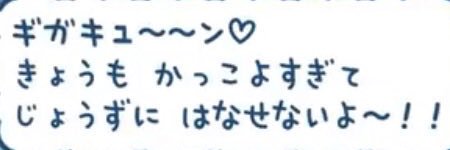 ギガキュ～～ン♡
きょうも かっこよすぎて
じょうずに はなせないよ～！！